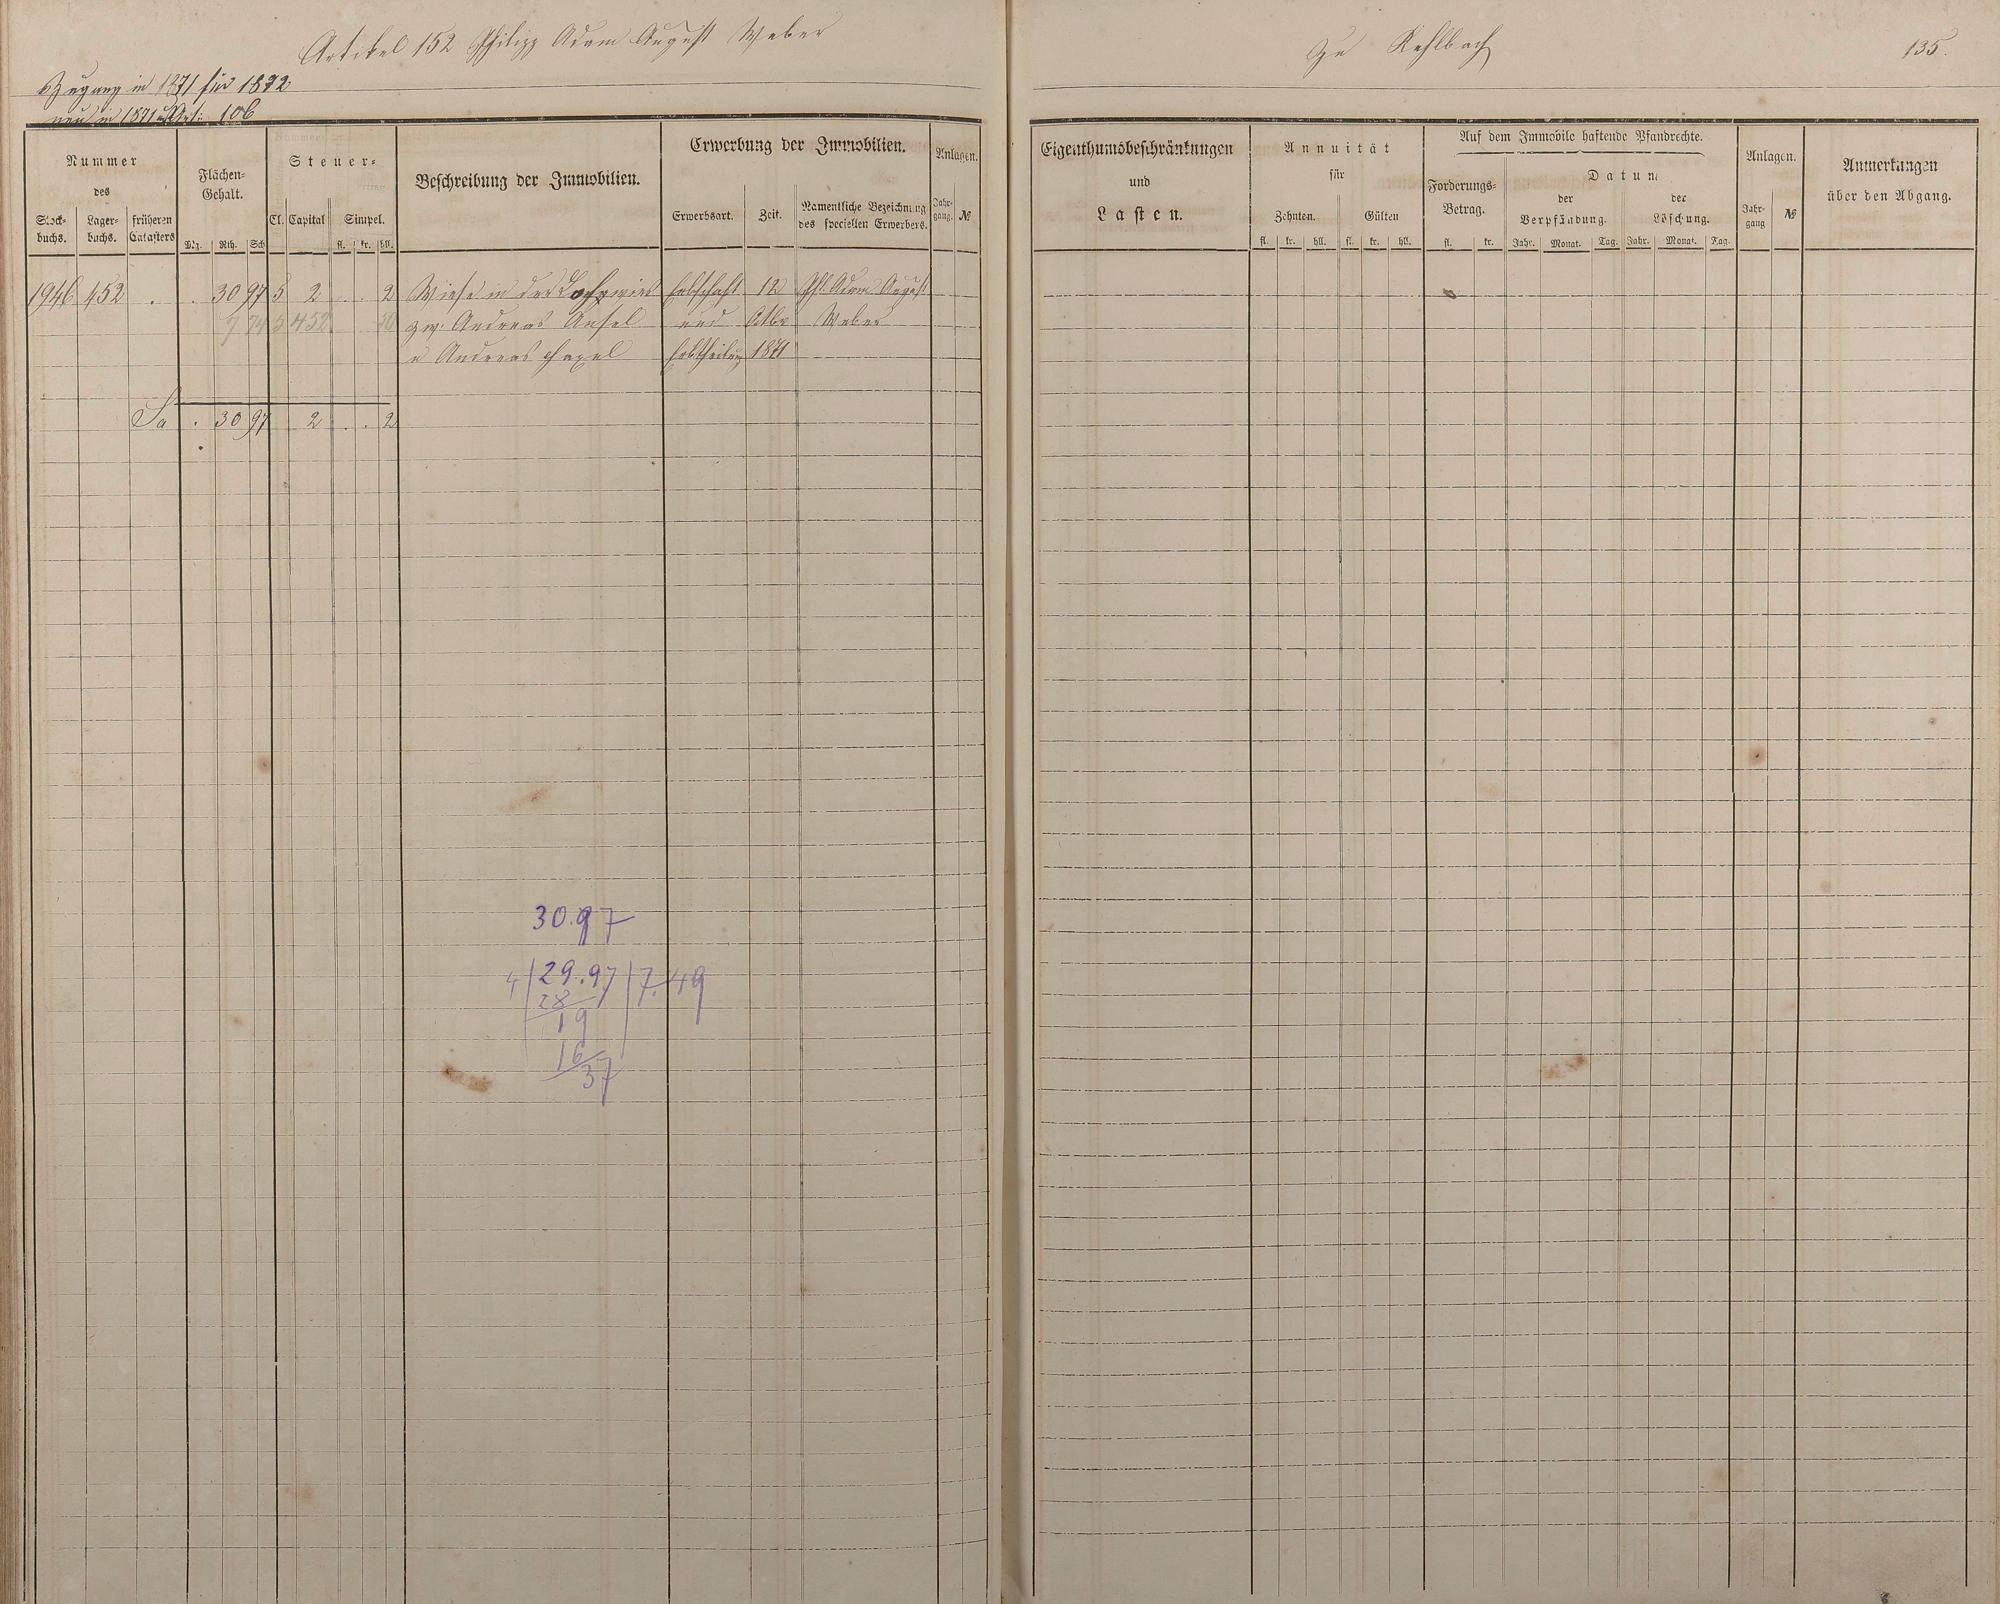 Artikel 152 Philipp Adam August Weber
Zugang in 1871 für 1872
neu in 1871 Art: 106
Nummer
des
Stock-
buchs.
Lager-
buchs.
früheren
Catasters
Flächen-
Gehalt.
Mg. Rth. Sch
Steuer-
Cl. Capital Simpel.
fl. kr. hll.
Beschreibung der Immobilien.
Erwerbung der Immobilien.
Erwerbsart. Zeit.
Namentliche Bezeichnung
des speciellen Erwerbers.
Anlagen.
Jahr-
gang. №
1946 452 . . 30 97 5 2 . . 2 Wiese in der erbschaft 12 Phl. Adam August
7 74 5 452 30 zw. Andreas Ansel und Octbr Weber
u Andreas erbtheilung 1871
Sa . 30 97 2 . . 2
30.97
4 | 29.97 | 7.49
28
19
16
37
zu Kehlbach
135.
Eigenthumsbeschränkungen
und
Lasten.
Annuität
für
Zehnten. Gülten
fl. kr. hll. fl. kr. hll.
Auf dem Immobile haftende Pfandrechte.
Forderungs-
Betrag.
fl. kr.
Datum
der
Verpfändung.
der
Löschung.
Jahr. Monat. Tag. Jahr. Monat. Tag.
Anlagen.
Jahr-
gang №
Anmerkungen
über den Abgang.